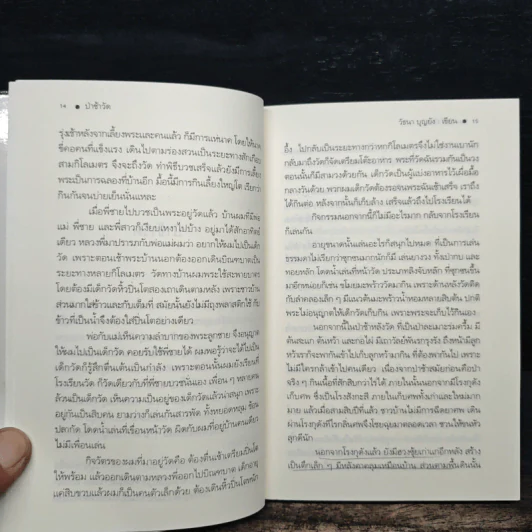 ๑๔ ● ป่าช้าวัด
รุ่งเช้าหลังจากเลี้ยงพระและคนแล้ว ก็มีการแห่นาค โดยให้นาค
ขี่คอคนที่แข็งแรง เดินไปตามร่องสวนเป็นระยะทางสักเกือบ
สามกิโลเมตร จึงจะถึงวัด ทำพิธีบวชเสร็จแล้วยังมีการเลี้ยง
พระเป็นการฉลองที่บ้านอีก มื้อนี้มีการกินเลี้ยงใหญ่โต เรียกว่า
กินกันจนบ่ายเย็นนั่นแหละ
เมื่อพี่ชายไปบวชเป็นพระอยู่วัดแล้ว บ้านผมที่มีพ่อ
แม่ พี่ชาย และพี่สาวก็เงียบเหงาไปบ้าง อยู่มาได้สักอาทิตย์
เดียว หลวงพี่มาปรารภกับพ่อแม่ผมว่า อยากให้ผมไปเป็นเด็ก
วัด เพราะตอนเช้าพระบ้านนอกต้องออกเดินบิณฑบาตเป็น
ระยะทางหลายกิโลเมตร วัดทางบ้านผมพระใช้สะพายบาตร
โดยต้องมีเด็กวัดหิ้วปิ่นโตสองเถาเดินตามหลัง เพราะชาวบ้าน
ส่วนมากใส่ข้าวและกับเต็มที่ สมัยนั้นยังไม่มีถุงพลาสติกใช้ กับ
ข้าวที่เป็นน้ำจึงต้องใส่ปิ่นโตอย่างเดียว
พ่อกับแม่เห็นความลำบากของพระลูกชาย จึงอนุญาต
ให้ผมไปเป็นเด็กวัด คอยรับใช้พี่ชายได้ ผมพอรู้ว่าจะได้ไปเป็น
เด็กวัดก็รู้สึกตื่นเต้นเป็นกำลัง เพราะตอนนั้นผมยังเรียนที่
โรงเรียนวัด ก็วัดเดียวกับที่พี่ชายบวชนั่นเอง เพื่อน ๆ หลายคน
ล้วนเป็นเด็กวัด เห็นความเป็นอยู่ของเด็กวัดแล้วน่าสนุก เพราะ
อยู่กันเป็นสิบคน ยามว่างก็เล่นกันสารพัด ทั้งทอยหลุม ช้อน
ปลากัด โดดน้ำเล่นที่เขื่อนหน้าวัด ผิดกับผมที่อยู่บ้านคนเดียว
ไม่มีเพื่อนเล่น
กิจวัตรของผมที่มาอยู่วัดคือ ต้องตื่นเช้าเตรียมปิ่นโต
ให้พร้อม แล้วออกเดินตามหลวงพี่ออกไปบิณฑบาต เด็กอายุ
แค่สิบขวบแล้วผมก็เป็นคนตัวเล็กด้วย ต้องเดินหิ้วปิ่นโตหนัก
วัธนา บุญยัง : เขียน ● ๑๕
อึ้ง ไปกลับเป็นระยะทางกว่าหกกิโลเมตรจึงไม่ใช่งานเบานัก
กลับมาถึงวัดก็จัดเตรียมโต๊ะอาหาร พระที่วัดฉันรวมกันเป็นวง
ตอนนั้นก็มีสามวงด้วยกัน เด็กวัดเป็นผู้แบ่งอาหารไว้เผื่อมื้อ
กลางวันด้วย พวกผมเด็กวัดต้องรอจนพระฉันเช้าเสร็จ เราถึง
ได้กินต่อ หลังจากนั้นก็เก็บล้าง เสร็จแล้วถึงไปโรงเรียนได้
กิจกรรมนอกจากนี้ก็ไม่มีอะไรมาก กลับจากโรงเรียน
ก็เล่นกัน
อายุขนาดนั้นเล่นอะไรก็สนุกไปหมด ที่เป็นการเล่น
ธรรมดาไม่เรียกว่าซุกซนมากนักก็มี เล่นยางวง ทั้งเป่ากบ และ
ทอยหลัก โดดน้ำเล่นที่หน้าวัด ประเภทลิงจับหลัก ที่ซุกซนขึ้น
มาอีกหน่อยก็เช่น ขโมยมะพร้าววัดมากิน เพราะด้านหลังวัดติด
กับลำคลองเล็ก ๆ มีแนวต้นมะพร้าวน้ำหอมหลายสิบต้น ปกติ
พระไม่อนุญาตให้เด็กวัดเก็บกิน เพราะพระจะเก็บไว้กินเอง
นอกจากนี้ในป่าช้าหลังวัด ที่เป็นป่าละเมาะร่มครึ้ม มี
ต้นสะแก ต้นหว้า และกอไผ่ มีเถาวัลย์พันรกรุงรัง ถึงหน้ามีลูก
หว้าเราก็จะพากันเข้าไปเก็บลูกหว้ามากิน ที่ต้องพากันไป เพราะ
ไม่มีใครกล้าเข้าไปคนเดียว เนื่องจากป่าช้าสมัยก่อนคือป่าช้า
จริง ๆ กันเนื้อที่สักสิบกว่าไร่ได้ ภายในนั้นนอกจากมีโรงกุฏัง
เก็บศพ ซึ่งเป็นโรงสังกะสี ภายในเก็บศพทั้งเก่าและใหม่มาก
มาย แล้วเมื่อสามสิบปีที่แล้ว ชาวบ้านไม่มีการฉีดยาศพ เดิน
ผ่านโรงกุฏังที่ไรกลิ่นศพจึงโชยมาตลอดเวลา ชวนให้ขนหัว
ลุกดีนัก
นอกจากโรงกุฏังแล้ว ยังมีฮวงซุ้ยเก่าแก่อีกหลัง สร้าง
เป็นตึกเล็ก ๆ มีหลังคาคลุมเหมือนบ้าน ส่วนตามพื้นดินนั้น